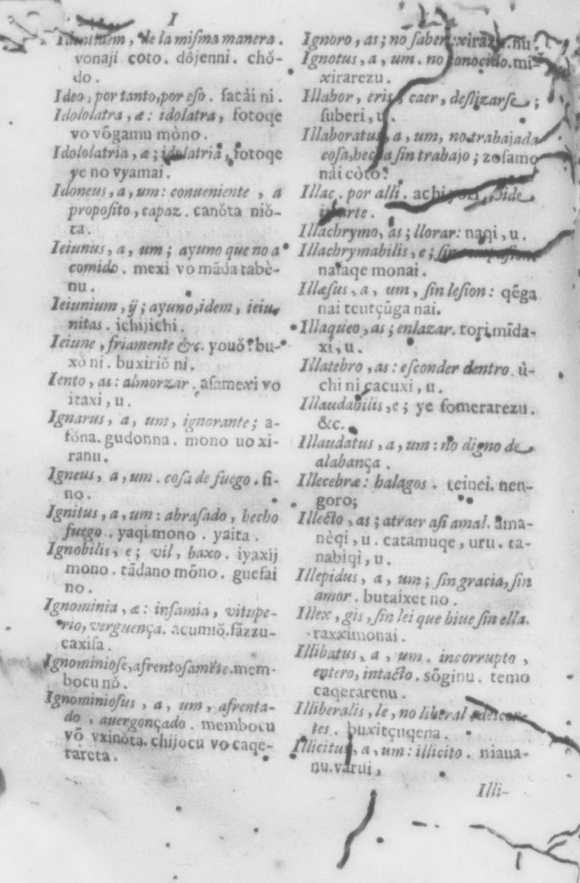 I
Identidem, de la misma manera.
vonaji coto. dôjenni. chǒ-
do.
Ideo, por tanto, por eſo. facài ni.
Idololatra, æ: idolatra, fotoqe
vo vôgamu mòno.
Idololatria, æ; idolatria, fotoqe
ye no vyamai.
Idoneus, a, um: conueniente, a
propoſito, capaz. canǒta niǒ-
ta.
Ieiunus, a, um; ayuno que no a
comido. mexi vo māda tabè-
nu.
Ieiunium, ij; ayuno, idem, ieiu-
nitas. ichijichi.
Ieiune, friamente &c. youǒ? bu-
xǒ ni. buxiriǒ ni.
Iento, as: almorzar. aſamexi vo
itaxi, u.
Ignarus, a, um, ignorante; a-
fóna. gudonna. mono uo xi-
ranu.
Igneus, a, um. coſa de fuego. fi-
no.
Ignitus, a, um: abraſado, hecho
fuego. yaqi mono. yaita.
Ignobilis, e; vil, baxo. iyaxij
mono. tādano mōno. guefai
no.
Ignominia, æ: infamia, vitupe-
rio, verguença. acumiǒ. fāzzu-
caxiſa.
Ignominioſe, afrentoſamēte. mem-
bocu nǒ.
Ignominioſus, a, um, afrenta-
do, auergonçado. membocu
vō vxinòta. chijocu vo caqe-
rareta.
Ignoro, as; no ſaber. xirazu. nu.
Ignotus, a, um. no conocido. mi-
xirarezu.
Illabor, eris, caer, deſlizarſe;
ſuberi, u.
Illaboratus, a, um, no trabajada
coſa, hecha ſin trabajo; zoſamo
nài còto?
Illac. por alli. achi
Illachrymo, as; llorar: naqi, u.
Illachrymabilis, e; ſin
naſaqe monai.
Illæſus, a, um, ſin leſion: qēga
nai teutçūga nai.
Illaqueo, as; enlazar. tori mīda-
xi, u.
Illatebro, as: eſconder dentro. ù-
chi ni cacuxi, u.
Illaudabilis, e; ye fomerarezu.
&c.
Illaudatus, a, um: no digno de
alabança.
Illecebræ: halagos. teinei. nen-
goro;
Illecto, as; atraer aſi amal. ama-
nèqi, u. catamuqe, uru. ta-
nabiqi, u.
Illepidus, a, um; ſin gracia, ſin
amor. butaixet no.
Illex, gis, ſin lei que biue ſin ella.
raxximonai.
Illibatus, a, um. incorrupto,
entero, intacto. sōginu. temo
caqerarenu.
Illiberalis, le, no liberal
tes. buxitçuqena.
Illicitus, a, um: illicito. niaua-
nu. varui,
Illi-